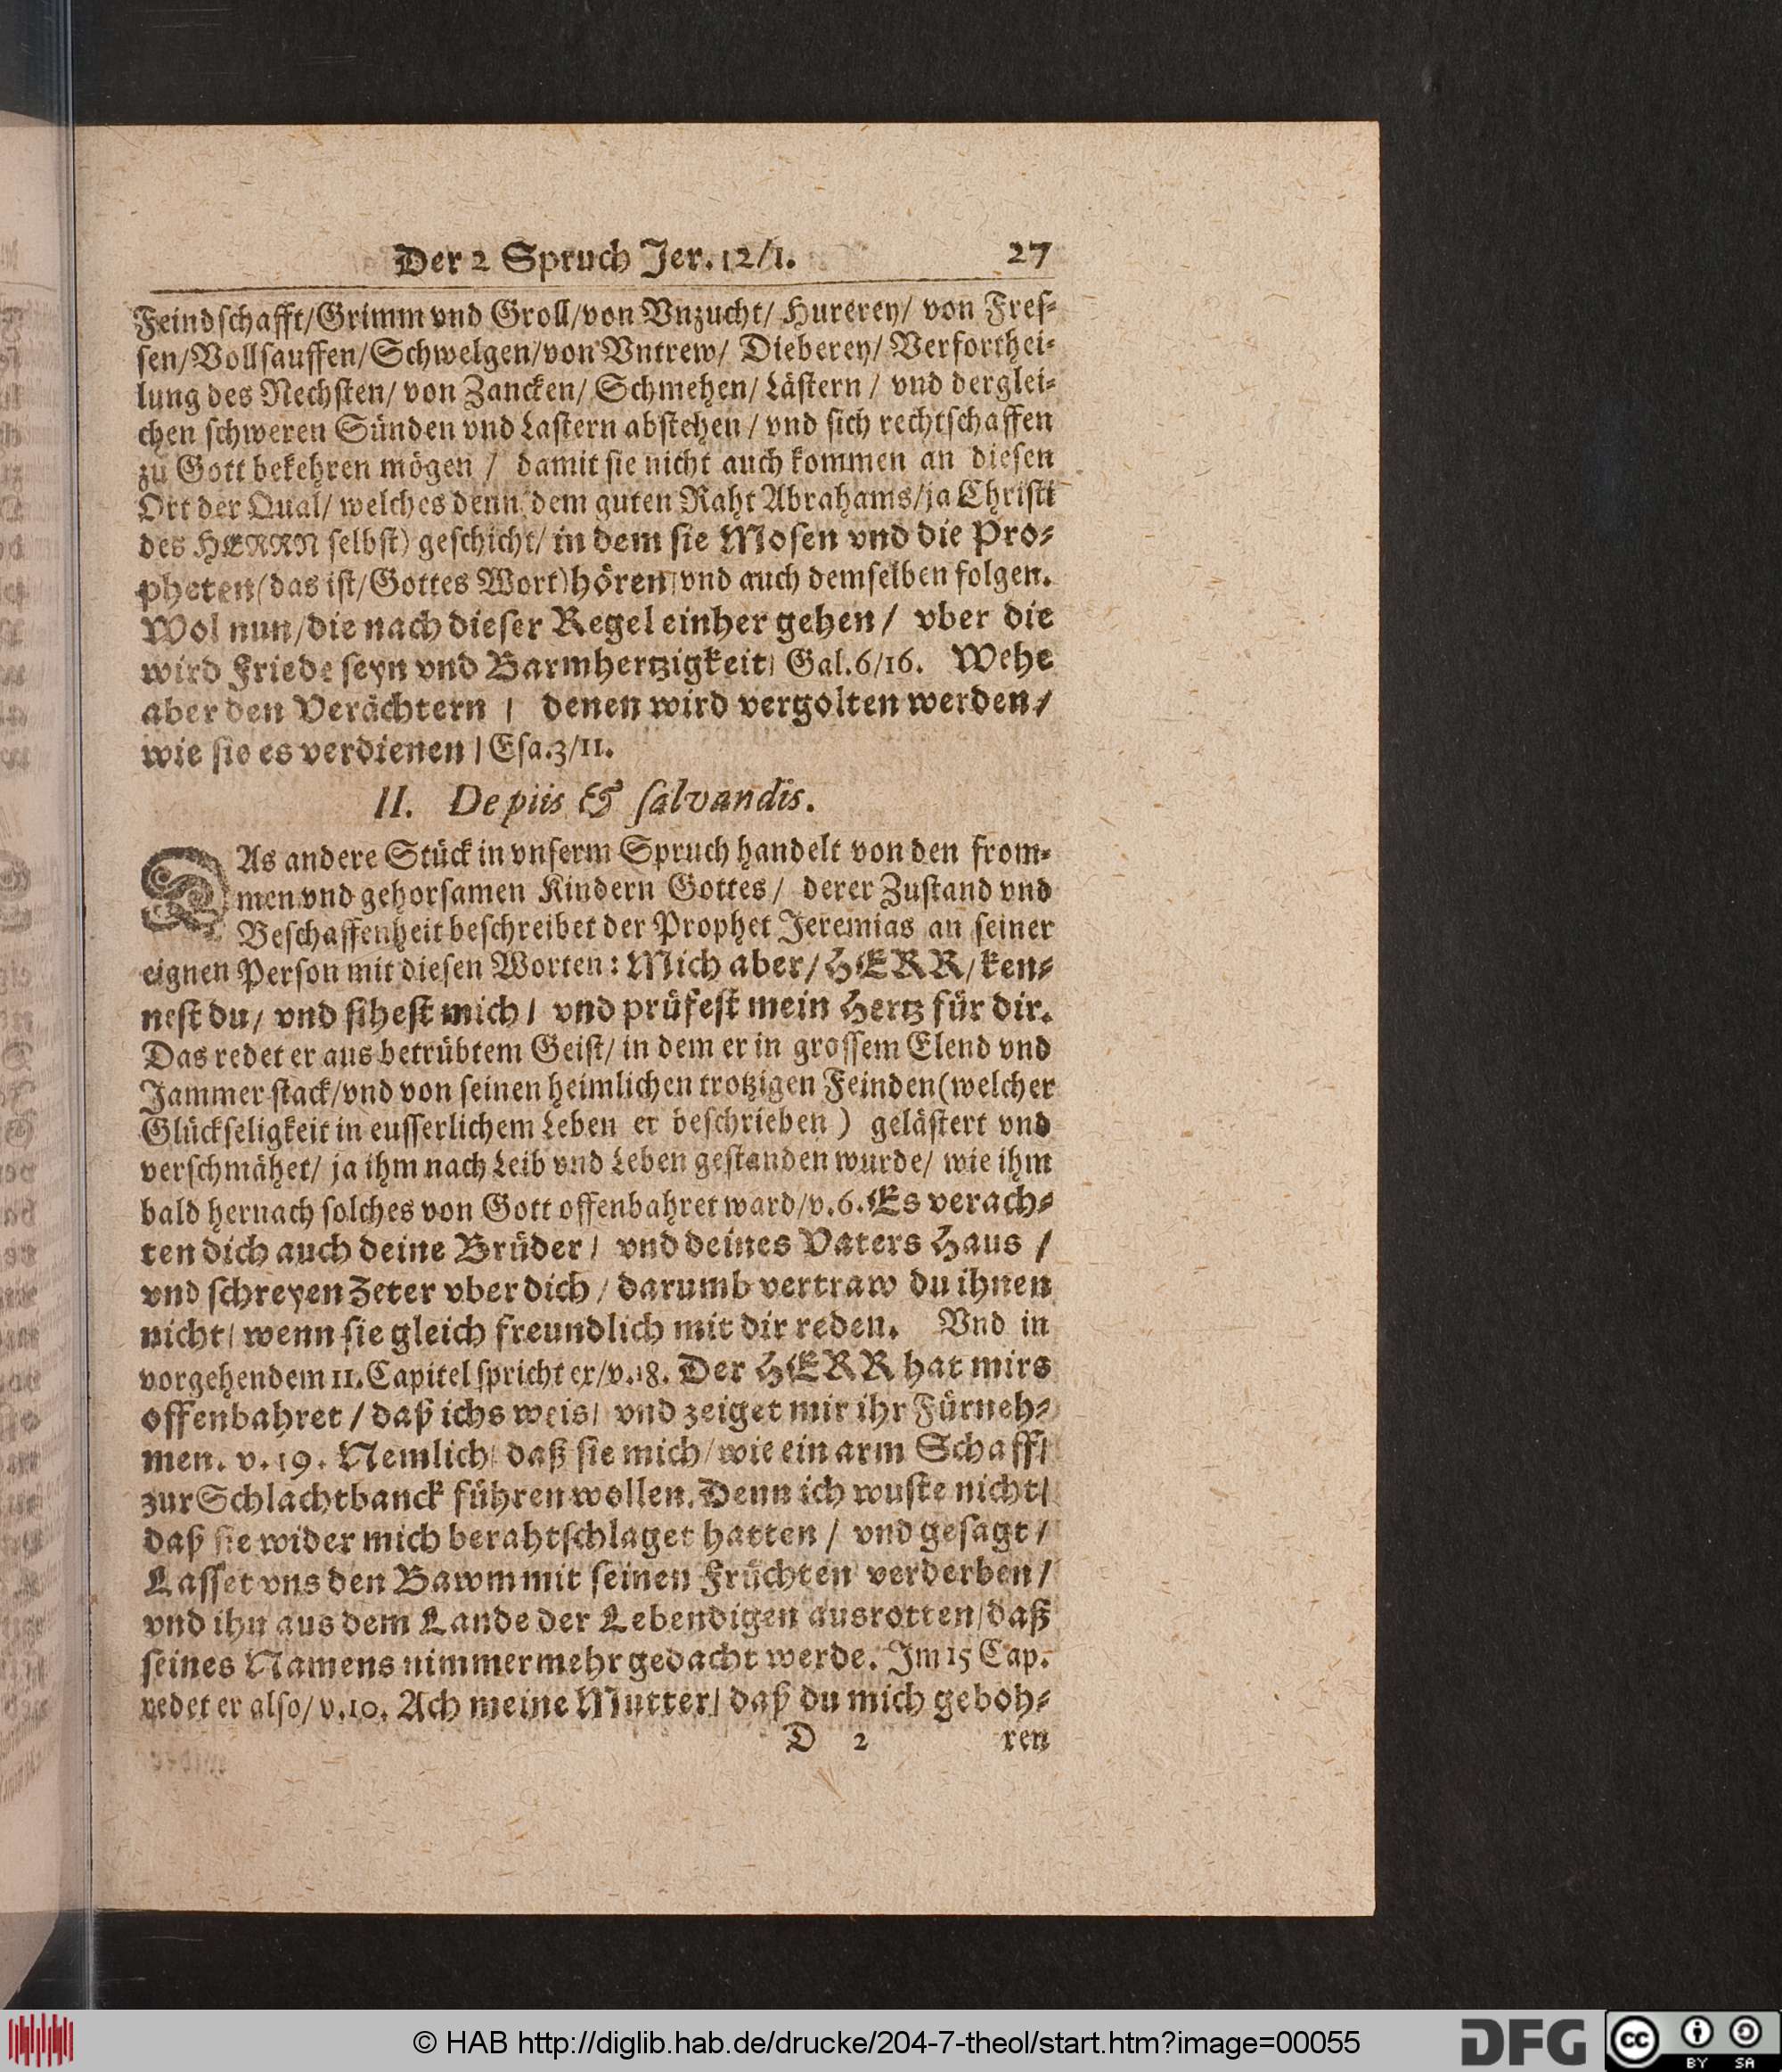 Der 2 Spruch Jer. 12/1. 27
Feindschafft/Grimm vnd Groll/von Vnzucht/ Hurerey/ von Fres-
sen/Vollsauffen/Schwelgen/von Vntrew/ Dieberey/ Verforthei-
lung des Nechsten/ von Zancken/ Schmehen/ Lästern / vnd derglei-
chen schweren Sünden vnd Lastern abstehen / vnd sich rechtschaffen
zu Gott bekehren mögen / damit sie nicht auch kommen an diesen
Ort der Qual/ welches denn dem guten Raht Abrahams/ja Christi
des HERRN selbst) geschicht/ in dem sie Mosen vnd die Pro-
pheten (das ist/Gottes Wort) hören/ vnd auch demselben folgen.
Wol nun/die nach dieser Regel einher gehen / vber die
wird Friede seyn vnd Barmhertzigkeit/ Gal.6/16. Wehe
aber den Verächtern / denen wird vergolten werden/
wie sie es verdienen / Esa.3/11.
II. De piis & salvandis.
DAs andere Stück in vnserm Spruch handelt von den from-
men vnd gehorsamen Kindern Gottes / derer Zustand vnd
Beschaffenheit beschreibet der Prophet Jeremias an seiner
eignen Person mit diesen Worten: Mich aber/ HERR/ ken-
nest du/ vnd sihest mich/ vnd prüfest mein Hertz für dir.
Das redet er aus betrübtem Geist/ in dem er in grossem Elend vnd
Jammer stack/vnd von seinen heimlichen trotzigen Feinden (welcher
Glückseligkeit in eusserlichem Leben er beschrieben ) gelästert vnd
verschmähet/ ja ihm nach Leib vnd Leben gestanden wurde/ wie ihm
bald hernach solches von Gott offenbahret ward/v.6. Es verach-
ten dich auch deine Brüder/ vnd deines Vaters Haus /
vnd schreyen Zeter vber dich / darumb vertraw du ihnen
nicht/ wenn sie gleich freundlich mit dir reden. Vnd in
vorgehendem 11. Capitel spricht er/v.18. Der HERR hat mirs
offenbahret / daß ichs weis/ vnd zeiget mir ihr Fürneh-
men. v. 19. Nemlich/ daß sie mich/ wie ein arm Schaff/
zur Schlachtbanck führen wollen. Denn ich wuste nicht/
daß sie wider mich berahtschlaget hatten / vnd gesagt /
Lasset vns den Bawm mit seinen Früchten verderben /
vnd ihn aus dem Lande der Lebendigen ausrotten/ daß
seines Namens nimmermehr gedacht werde. Im 15 Cap.
redet er also/ v.10. Ach meine Mutter/ daß du mich geboh-
D 2 ren
© HAB http://diglib.hab.de/drucke/204-7-theol/start.htm?image=00055
DFG
cc BY SA